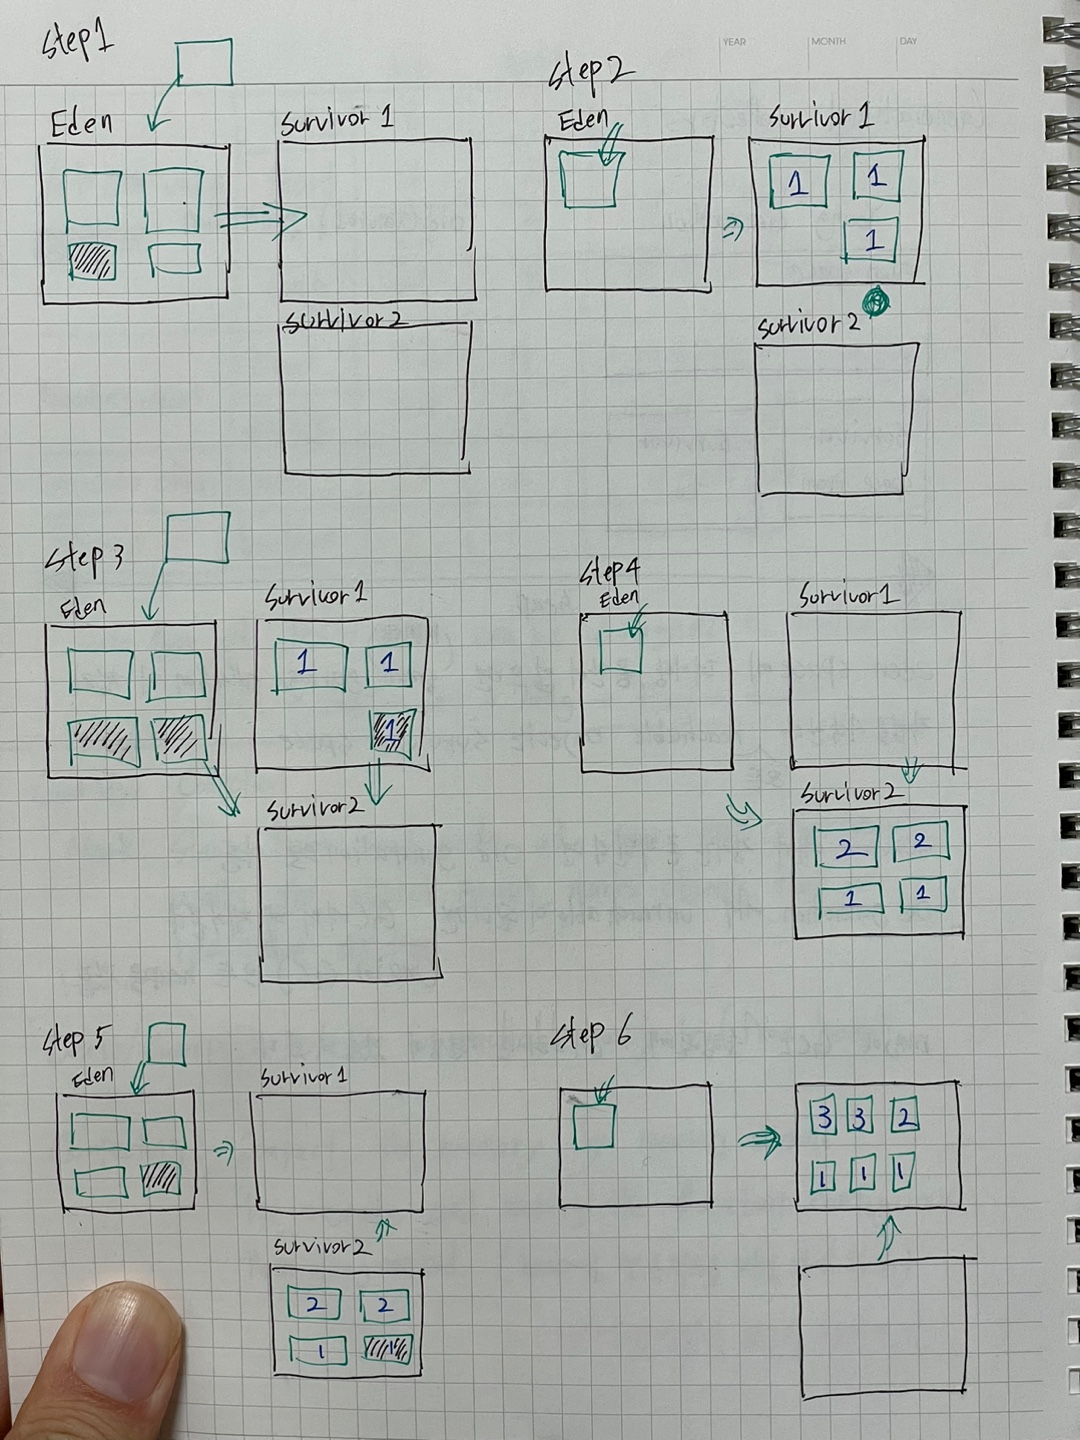 YEAR MONTH DAY
Step1
Eden
Survivor 1
Survivor 2
Step2
Eden
Survivor 1
1 1
1
Survivor 2
Step 3
Eden
Survivor 1
1 1
1
Survivor2
Step4
Eden
Survivor1
Survivor2
2 2
1 1
Step 5
Eden
Survivor1
Survivor2
2 2
1 1
Step 6
3 3 2
1 1 1